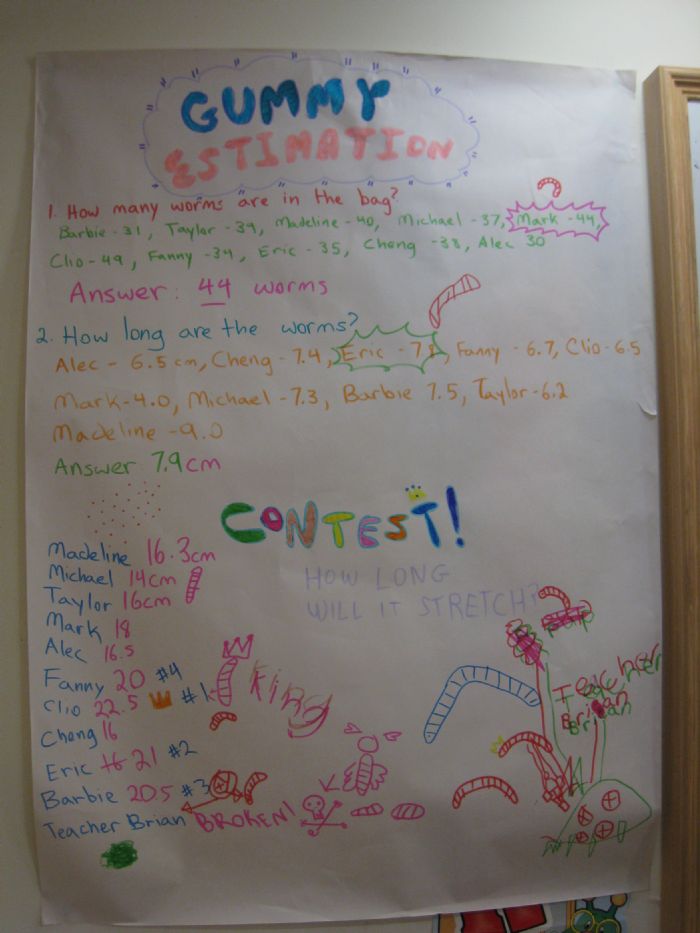 GUMMY
ESTIMATION
1. How many worms are in the bag?
Barbie - 31, Taylor - 39, Madeline - 40, Michael - 37, Mark - 44,
Clio - 49, Fanny - 34, Eric - 35, Cheng - 38, Alec 30
Answer: 44 worms
2. How long are the worms?
Alec - 6.5 cm, Cheng - 7.4, Eric - Fanny - 6.7, Clio - 6.5
Mark - 4.0, Michael - 7.3, Barbie 7.5, Taylor - 6.2
Madeline - 9.0
Answer 7.9 cm
CONTEST!
HOW LONG
WILL IT STRETCH?
Madeline 16.3cm
Michael 14cm
Taylor 16cm
Mark 18
Alec 16.5
Fanny 20 #4
Clio 22.5 #1
King
Cheng 16
Eric 21 #2
Barbie 20.5 #3
Teacher Brian BROKEN!
Poop
Teacher
Brian